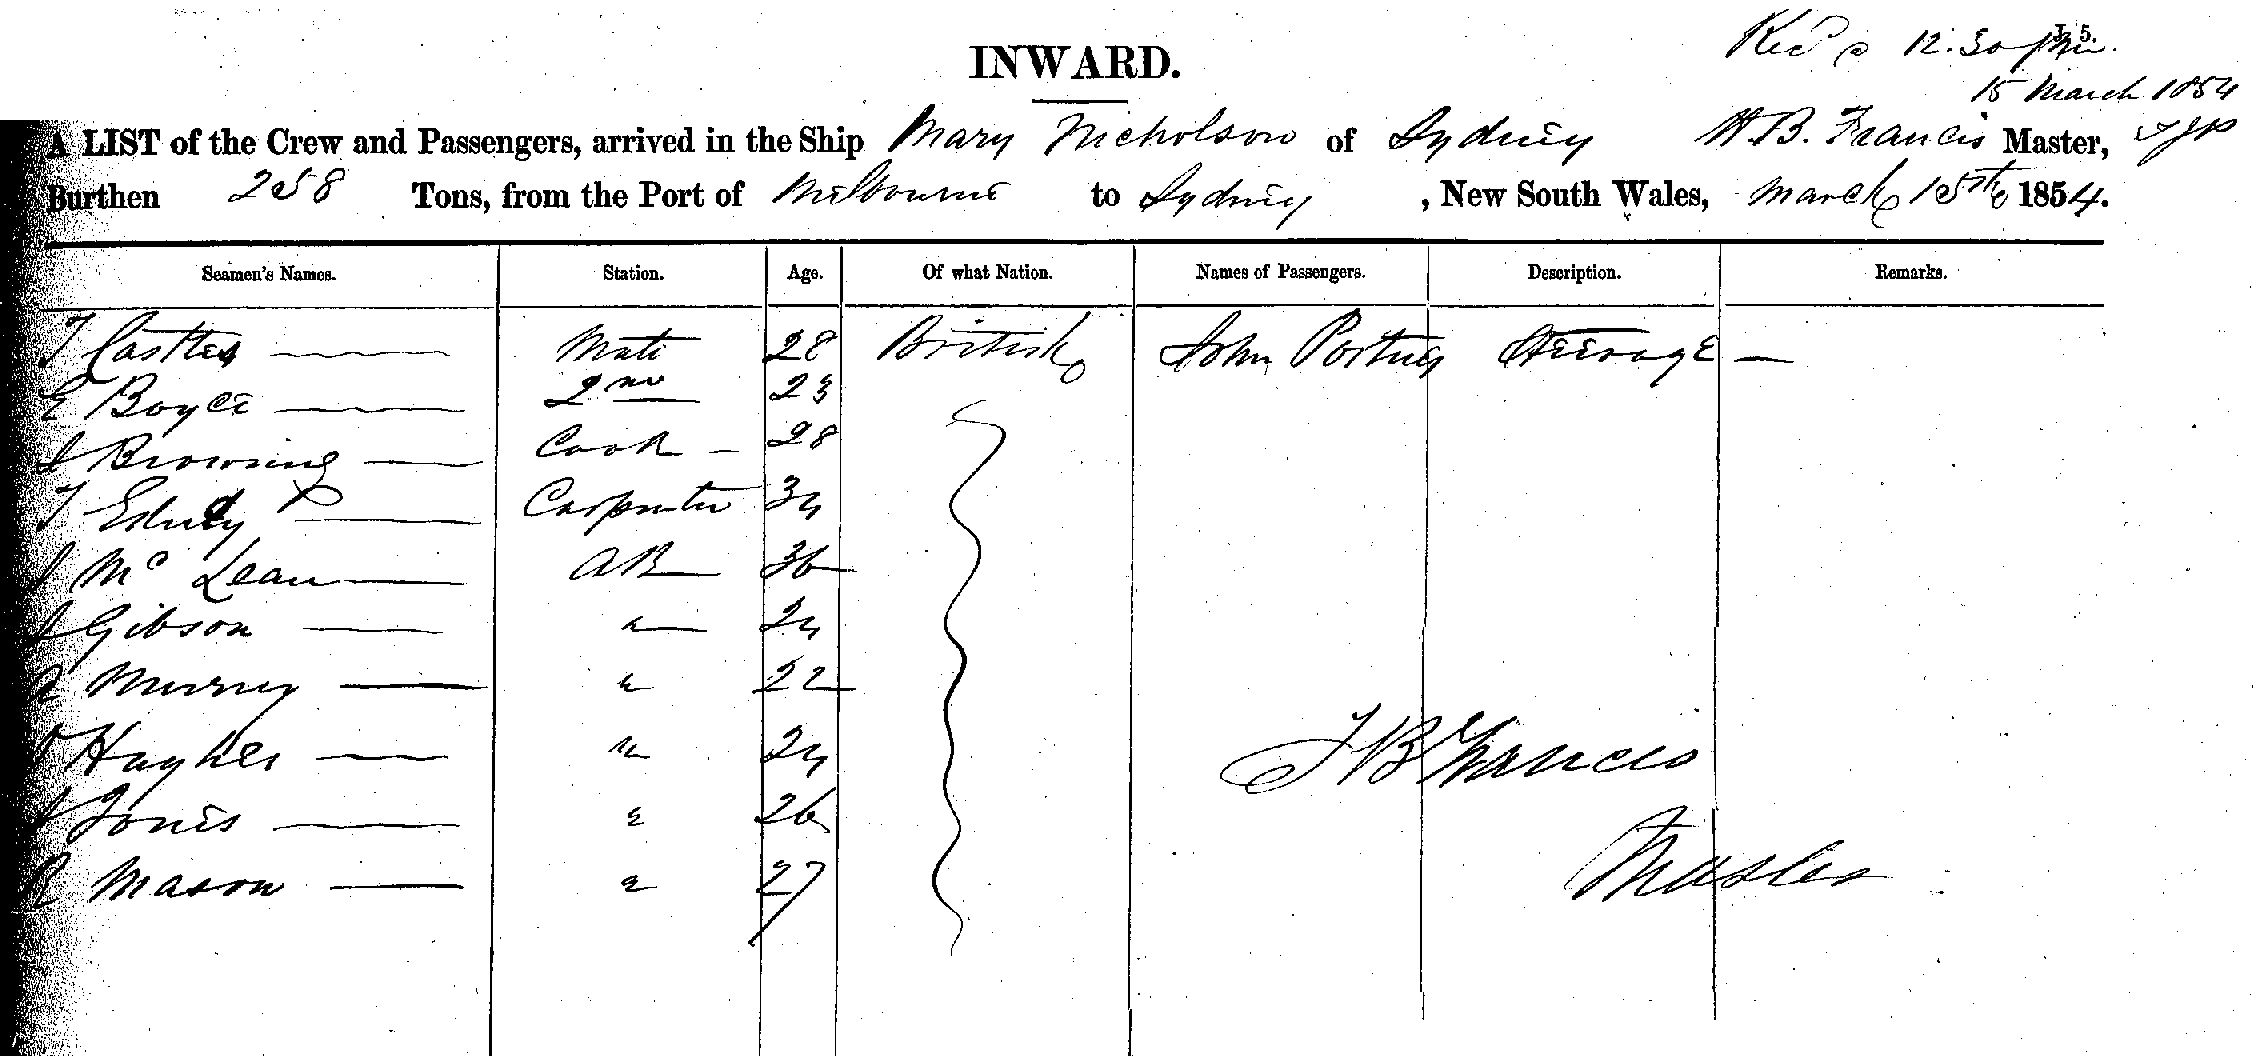 Recd @ 12.30 pm.
15 March 1854
INWARD.
A LIST of the Crew and Passengers, arrived in the Ship Mary Nicholson of Sydney H B. Francis Master,
Burthen 258 Tons, from the Port of Melbourne to Sydney, New South Wales, March 15th 1854.
Seamen's Names. Station. Age. Of what Nation. Names of Passengers. Description. Remarks.
T Castles Mate 28 British John Steerage
E Boyce 2nd 23
J Browning Cook 28
T Carpenter 34
J Mc Lean AB 36
J Gibson " 24
Murray " 22
Hughes " 24
J Jones " 26
R Mason " 27
J B Francis
Master